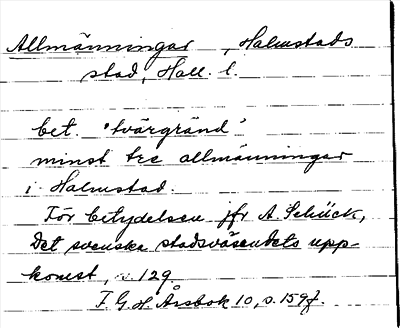 Allmänningar, Halmstads
stad, Hall. l.
bet. 'tvärgränd'
minst tre allmänningar
i Halmstad.
För betydelsen jfr A. Schück,
Det svenska stadsväsendets upp-
komst, s. 129.
F. G. H. Årsbok 10, s. 159 f.